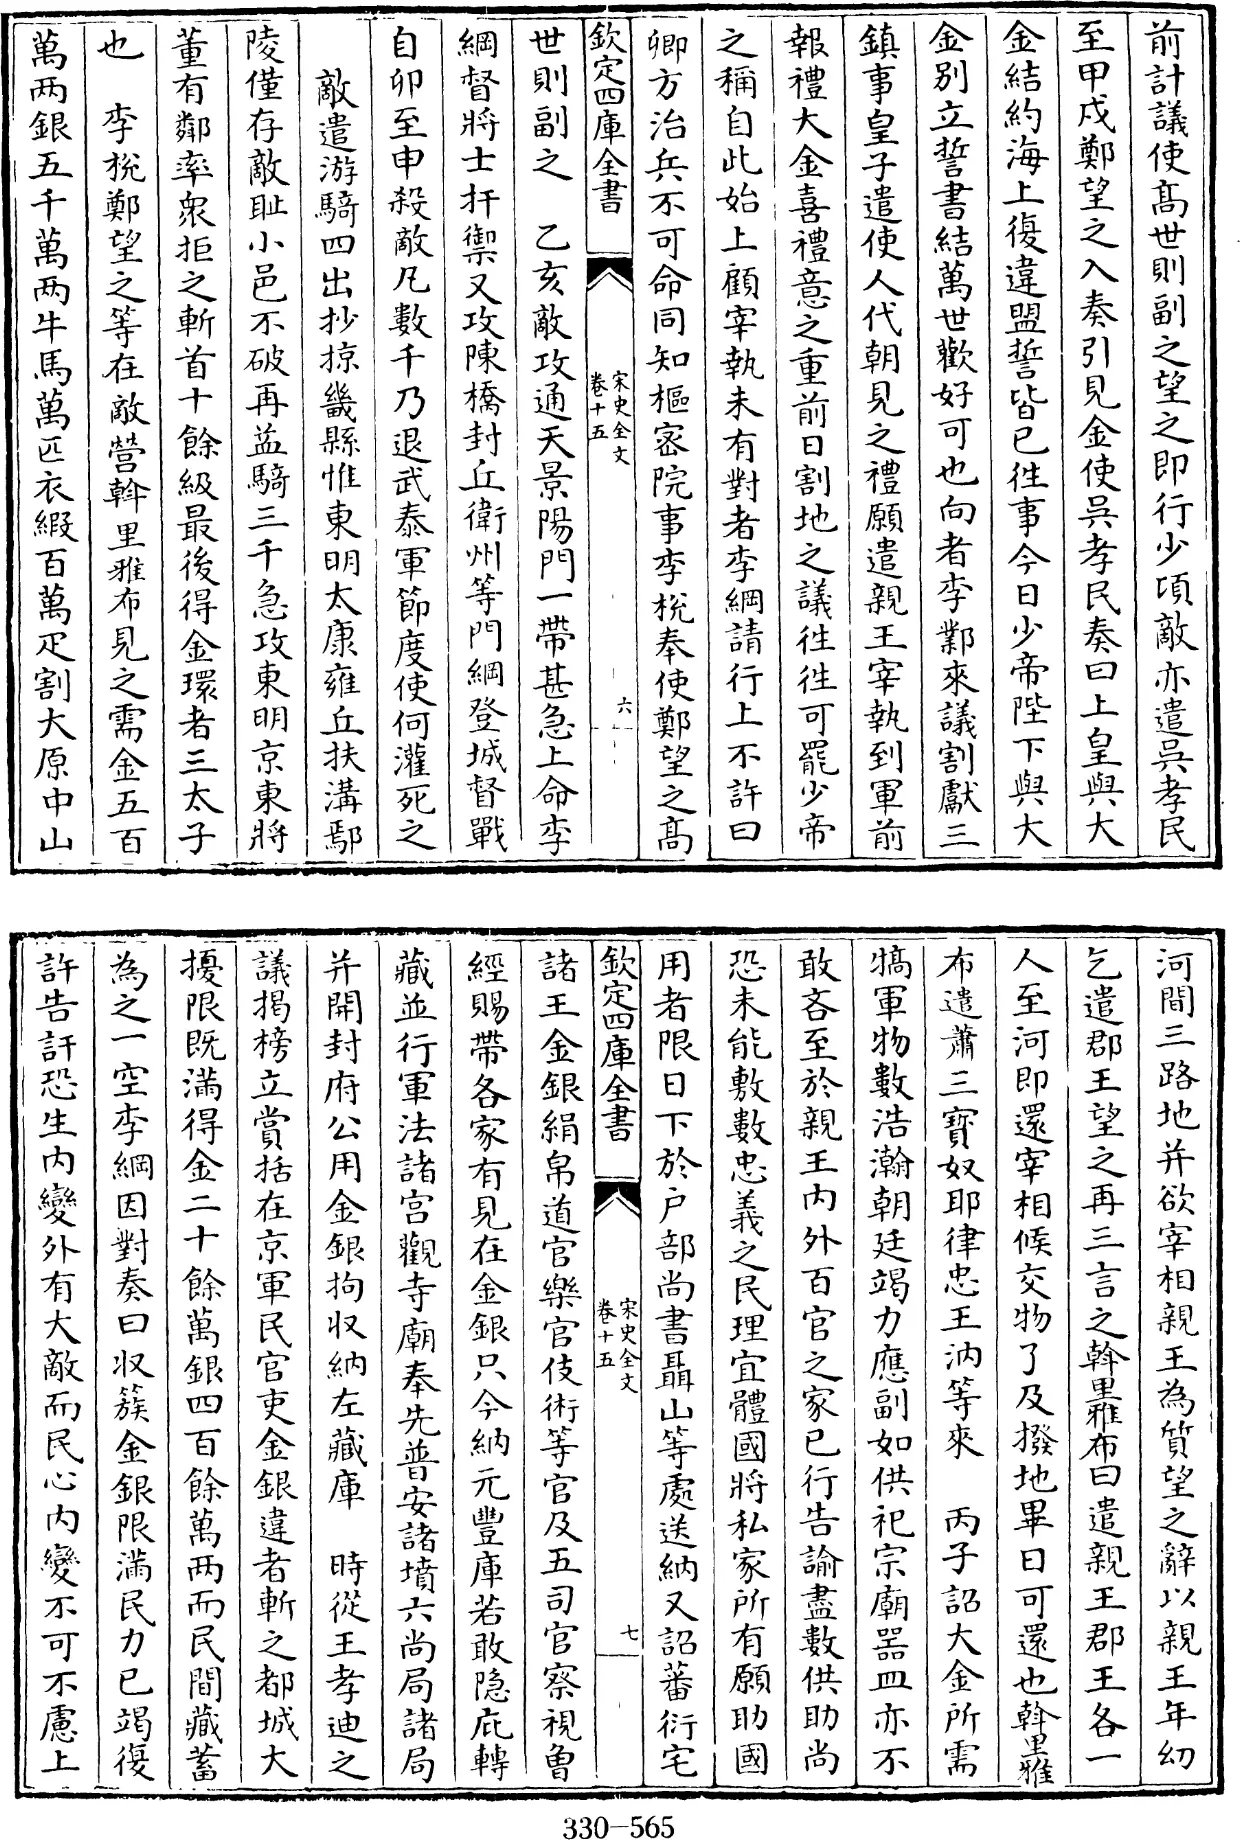 前計議使髙世則副之望之即行少頃敵亦遣吳孝民
至甲戍鄭望之入奏引見金使吳孝民奏曰上皇與大
金結約海上復違盟誓皆已徃事今日少帝陛下與大
金别立誓書結萬世歡好可也向者李鄴來議割獻三
鎮事皇子遣使人代朝見之禮願遣親王宰執到軍前
報禮大金喜禮意之重前日割地之議徃徃可罷少帝
之稱自此始上顧宰執未有對者李綱請行上不許曰
卿方治兵不可命同知樞宻院事李梲奉使鄭望之髙
欽定四庫全書
宋史全文
卷十五
六
世則副之　乙亥敵攻通天景陽門一帶甚急上命李
綱督將士扞禦又攻陳橋封丘衛州等門綱登城督戰
自卯至申殺敵凡數千乃退武泰軍節度使何灌死之
敵遣游騎四出抄掠畿縣惟東明太康雍丘扶溝鄢
陵僅存敵耻小邑不破再益騎三千急攻東明京東將
董有鄰率衆拒之斬首十餘級最後得金環者三太子
也　李梲鄭望之等在敵營斡里雅布見之需金五百
萬两銀五千萬两牛馬萬匹衣緞百萬疋割大原中山
河間三路地并欲宰相親王為質望之辭以親王年幼
乞遣郡王望之再三言之斡里雅布曰遣親王郡王各一
人至河即還宰相候交物了及撥地畢日可還也斡里雅
布遣蕭三寳奴耶律忠王汭等來　丙子詔大金所需
犒軍物數浩瀚朝廷竭力應副如供祀宗廟器皿亦不
敢吝至於親王内外百官之家已行告諭盡數供助尚
恐未能敷數忠義之民理宜體國將私家所有願助國
用者限日下於户部尚書聶山等處送納又詔蕃衍宅
欽定四庫全書
宋史全文
卷十五
七
諸王金銀絹帛道官樂官伎術等官及五司官察視魯
經賜帶各家有見在金銀只今納元豐庫若敢隐庇轉
藏並行軍法諸宫觀寺廟奉先普安諸墳六尚局諸局
并開封府公用金銀拘収納左藏庫　時從王孝迪之
議掲榜立賞括在京軍民官吏金銀違者斬之都城大
擾限既滿得金二十餘萬銀四百餘萬两而民間藏蓄
為之一空李綱因對奏曰収簇金銀限滿民力已竭復
許告訐恐生内變外有大敵而民心内變不可不慮上
330-565